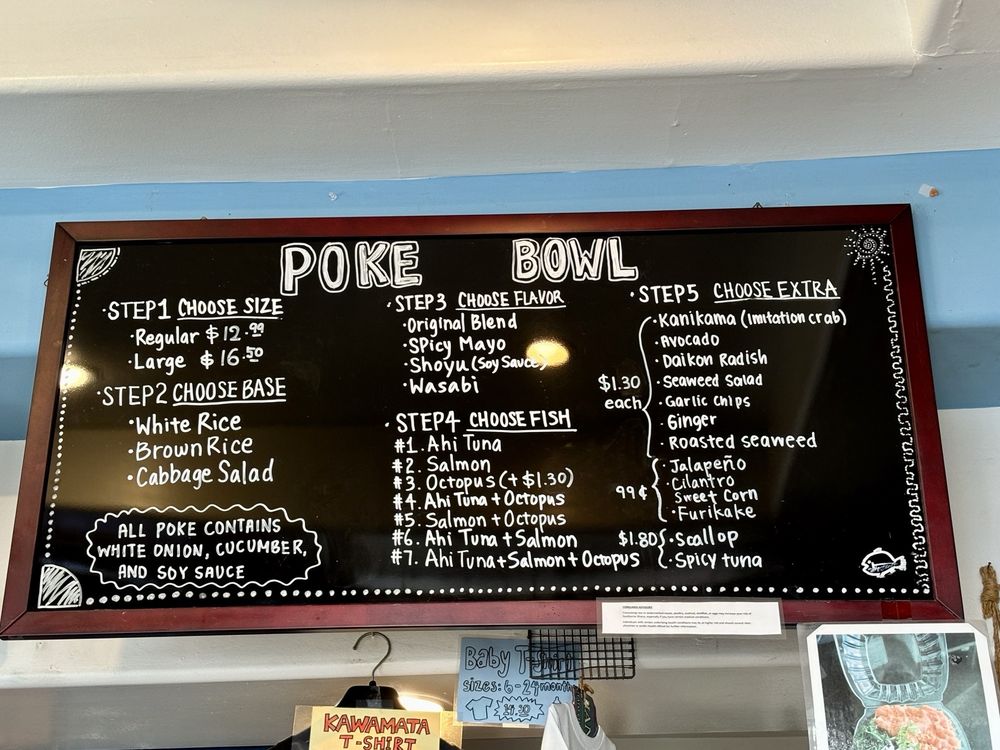 POKE BOWL
·STEP1 CHOOSE SIZE
·Regular $12.99
·Large $16.50
·STEP2 CHOOSE BASE
·White Rice
·Brown Rice
·Cabbage Salad
ALL POKE CONTAINS
WHITE ONION, CUCUMBER,
AND SOY SAUCE
·STEP3 CHOOSE FLAVOR
·Original Blend
·Spicy Mayo
·Shoyu (Soy Sauce)
·Wasabi
·STEP4 CHOOSE FISH
#1. Ahi Tuna
#2. Salmon
#3. Octopus (+$1.30)
#4. Ahi Tuna + Octopus
#5. Salmon + Octopus
#6. Ahi Tuna + Salmon
#7. Ahi Tuna + Salmon + Octopus
·STEP5 CHOOSE EXTRA
$1.30
each
·Kanikama (imitation crab)
·Avocado
·Daikon Radish
·Seaweed Salad
·Garlic Chips
·Ginger
·Roasted seaweed
99¢
·Jalapeño
·Cilantro
Sweet Corn
·Furikake
$1.80
·Scallop
·Spicy tuna
Baby T-Shirt
Sizes: 6-24 month
KAWAMATA
T-SHIRT